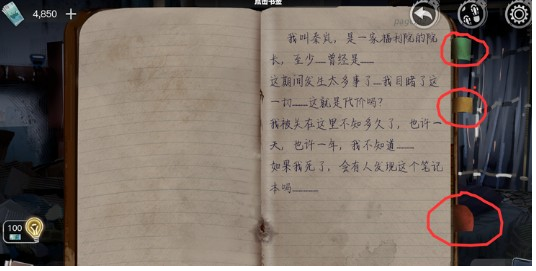 4,850 +
点击书签
我叫秦岚，是一家福利院的院
长，至少……曾经是……
这期间发生太多事了…我目睹了这
一切……这就是代价吗？
我被关在这里不知多久了，也许一
天，也许一年，我不知道……
如果我死了，会有人发现这个笔记
本吗………
100